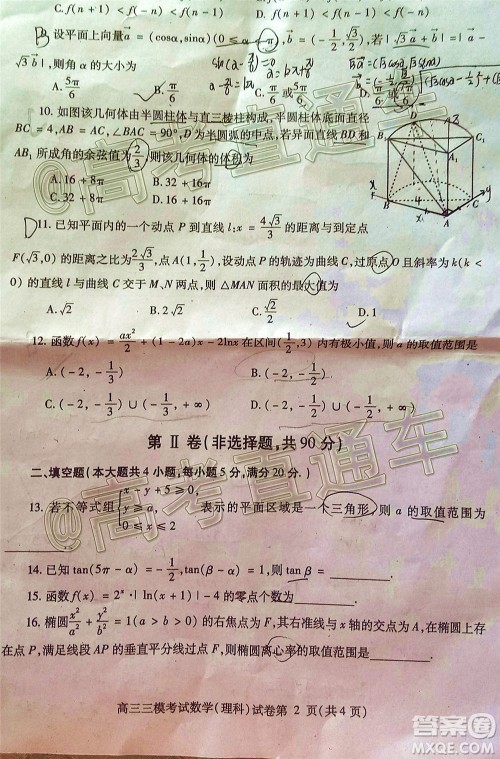 C. f(n+1) < f(n)+1　　D. f(n+1) > f(n)+1
设平面上向量a⃗=(cosα,sinα)(0≤α<π), b⃗=(-1/2,√3/2),若|√3a⃗+b⃗|=|a⃗-
√3b⃗|,则角α的大小为
A. 5π/6　　B. π/6
10. 如图该几何体由半圆柱体与直三棱柱构成,半圆柱体底面直径
BC=4,AB=AC,∠BAC=90°,D为半圆弧的中点,若异面直线BD和
AB₁所成角的余弦值为2/3,则该几何体的体积为
A. 16+8π　　B. 32+16π
C. 32+8π　　D. 16+16π
D 11. 已知平面内的一个动点P到直线l:x=4√3/3的距离与到定点
F(√3,0)的距离之比为2√3/3,点A(1,1/2),设动点P的轨迹为曲线C,过原点O且斜率为k(k<
0)的直线l与曲线C交于M、N两点,则△MAN面积的最大值为
A. √2　　B. 2√2　　C. √2/2　　D. 1
12. 函数f(x)=ax²/2+(1-2a)x-2lnx在区间(1/2,3)内有极小值,则a的取值范围是
A. (-2,-1/3)　　B. (-2,-1/2)
C. (-2,-1/3)∪(-1/3,+∞)　　D. (-2,-1/2)∪(-1/2,+∞)
第Ⅱ卷(非选择题,共90分)
二、填空题(本大题共4小题,每小题5分,满分20分.)
13. 若不等式组{x-y+5≥0, y≥a, 0≤x≤2表示的平面区域是一个三角形,则a的取值范围为
14. 已知tan(5π-α)=-1/2,tan(β-α)=1,则tanβ=
15. 函数f(x)=2ˣ·|lnx|-1的零点个数为
16. 椭圆x²/a²+y²/b²=1(a>b>0)的右焦点为F,其右准线与x轴的交点为A,在椭圆上存
在点P,满足线段AP的垂直平分线过点F,则椭圆离心率的取值范围是
高三三模考试数学(理科)试卷第 2 页(共4页)
@高考直通车
@高考直通车
答案圈
MXQE.COM